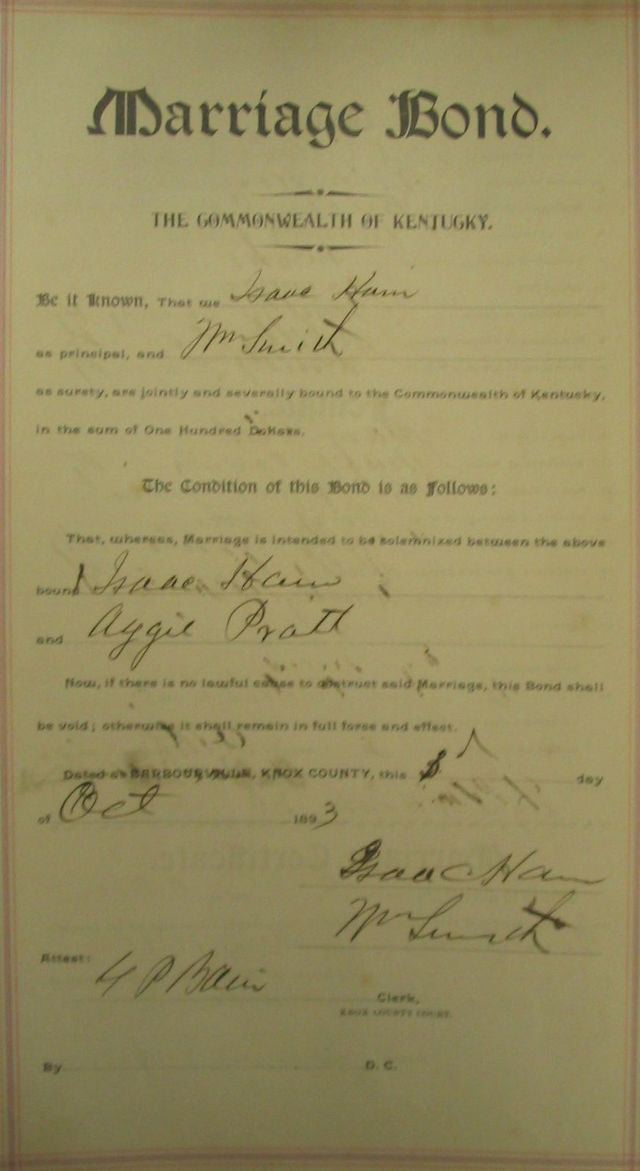 Marriage Bond.
THE COMMONWEALTH OF KENTUCKY.
Be it Known, That we Isaac Ham
as principal, and Wm Smith
as surety, are jointly and severally bound to the Commonwealth of Kentucky,
in the sum of One Hundred Dollars.
The Condition of this Bond is as Follows:
That, whereas, Marriage is intended to be solemnized between the above
bound Isaac Ham
and Aggie Pratt
Now, if there is no lawful cause to obstruct said Marriage, this Bond shall
be void; otherwise it shall remain in full force and effect.
Dated at BARBOURVILLE, KNOX COUNTY, this day
of Oct 1893
Isaac Ham
Wm Smith
Attest:
Clerk,
KNOX COUNTY COURT.
By D. C.